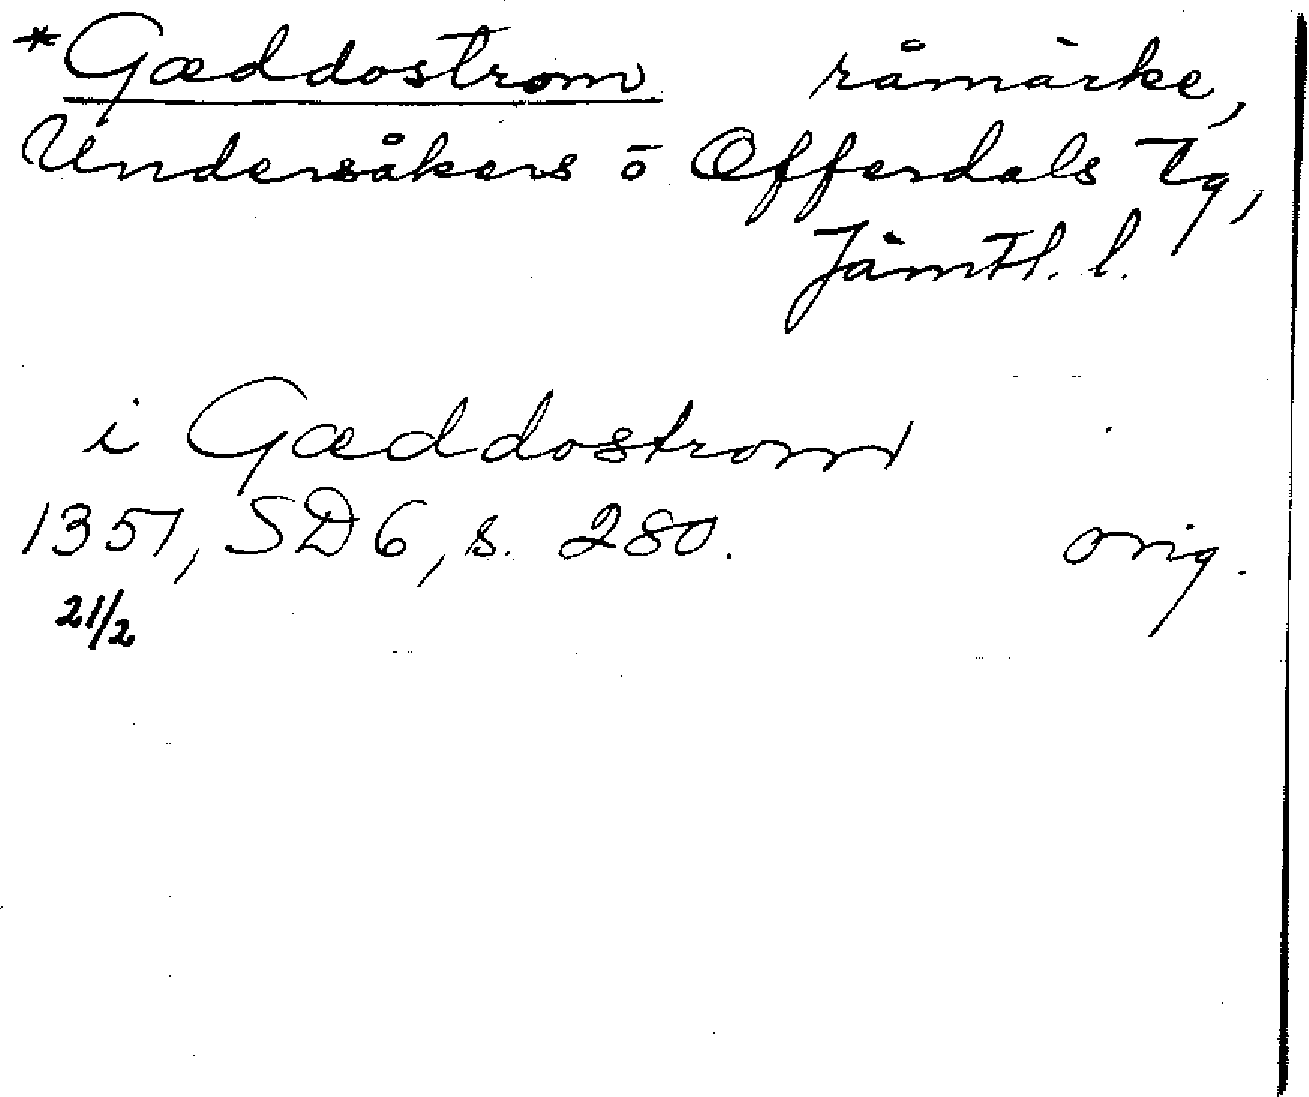 *Gæddostrom råmärke,
Undersåkers o Offerdals tg,
Jämtl. l.
i Gæddostrom
1351, SD 6, s. 280. orig.
21/2